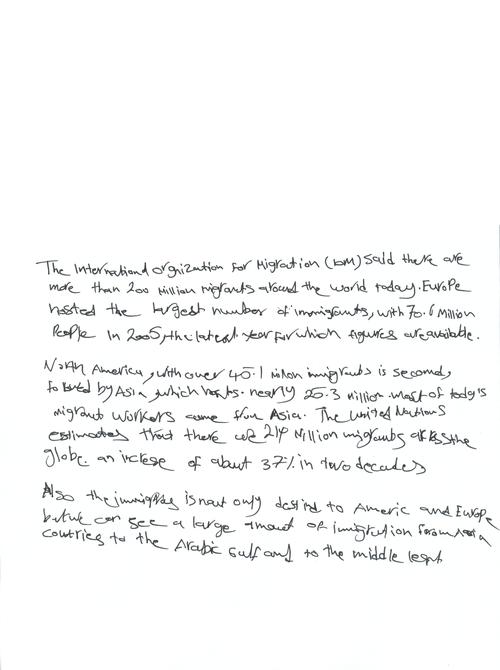 The International Orgnization for Migration (IOM) Said there are
more than 200 Million migrants around the world today. Europe
hosted the largest number of immigrants, with 70.6 Million
People in 2005, the latest year for which figures are available.
North America, with over 45.1 milion immigrants is second,
followed by Asia, which hosts nearly 25.3 Million. most of today's
migrant workers come from Asia. The united Nations
estimates that there are 214 Million migrants across the
globe. an increse of about 37% in two decades
Also the is not only to Americ and Europe
but we can see a large amount of immigration from Asia
countries to the Arabic Gulf and to the middle